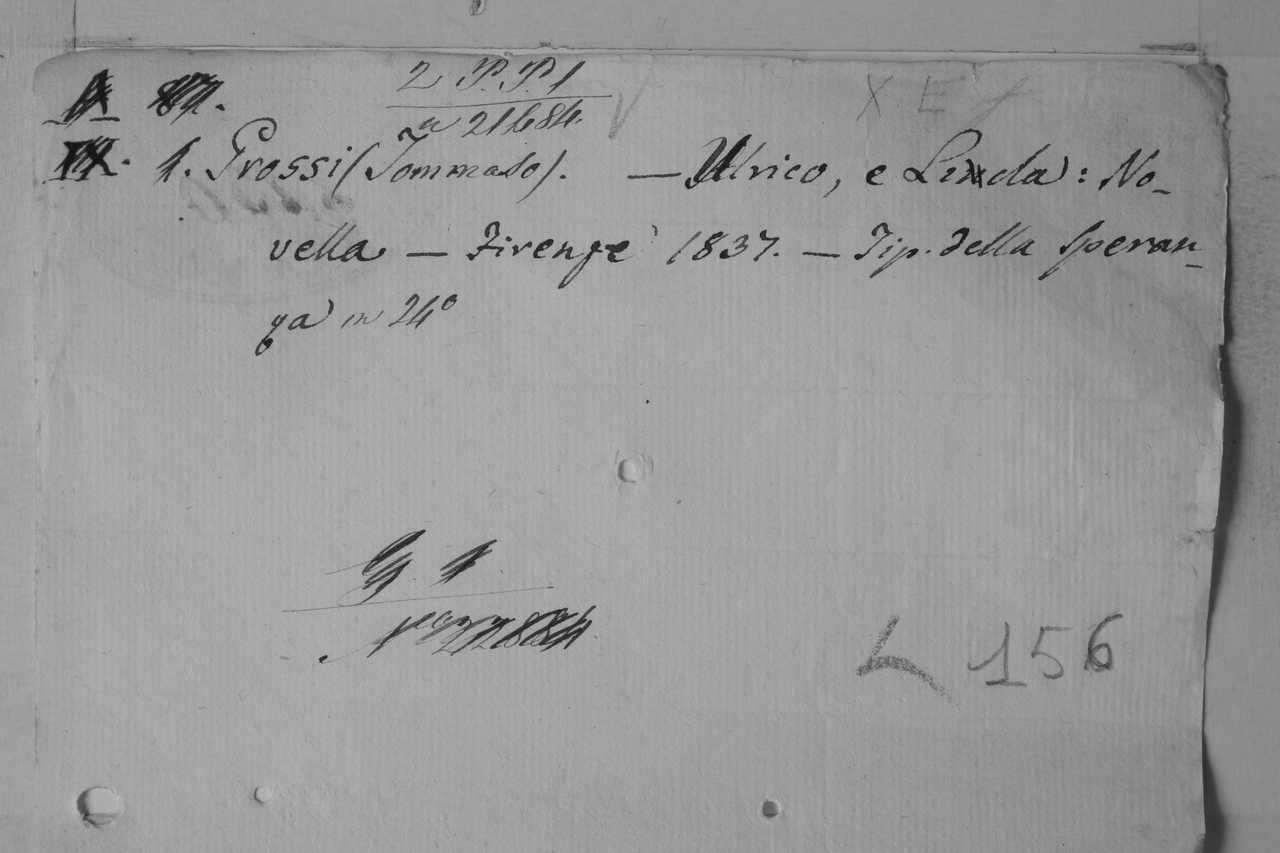 2 P.P.1
X E
a 21684.
IX. 1. Grossi (Tommaso). — Ulrico, e Linda: No-
vella — Firenze 1837. — Tip. della Speran-
za in 24°
G. 1
N° 22884
L 156